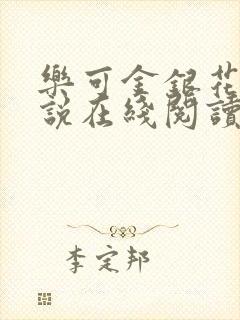 樂可金銀花
說在綫閱讀
李定邦